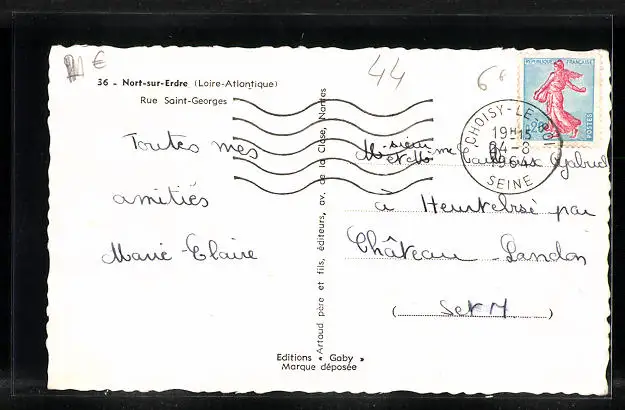 €
44
6€
36 - Nort-sur-Erdre (Loire-Atlantique)
Rue Saint-Georges
Toutes mes
amitiés
Marie-Claire
Artaud père et fils, éditeurs, av. de la Close, Nantes
Editions « Gaby »
Marque déposée
REPUBLIQUE FRANÇAISE
POSTES
CHOISY-LE-ROI
19H15
24-8
1964
SEINE
Monsieur
et Mme Gabriel
à par
Château-Landon
(S et M)